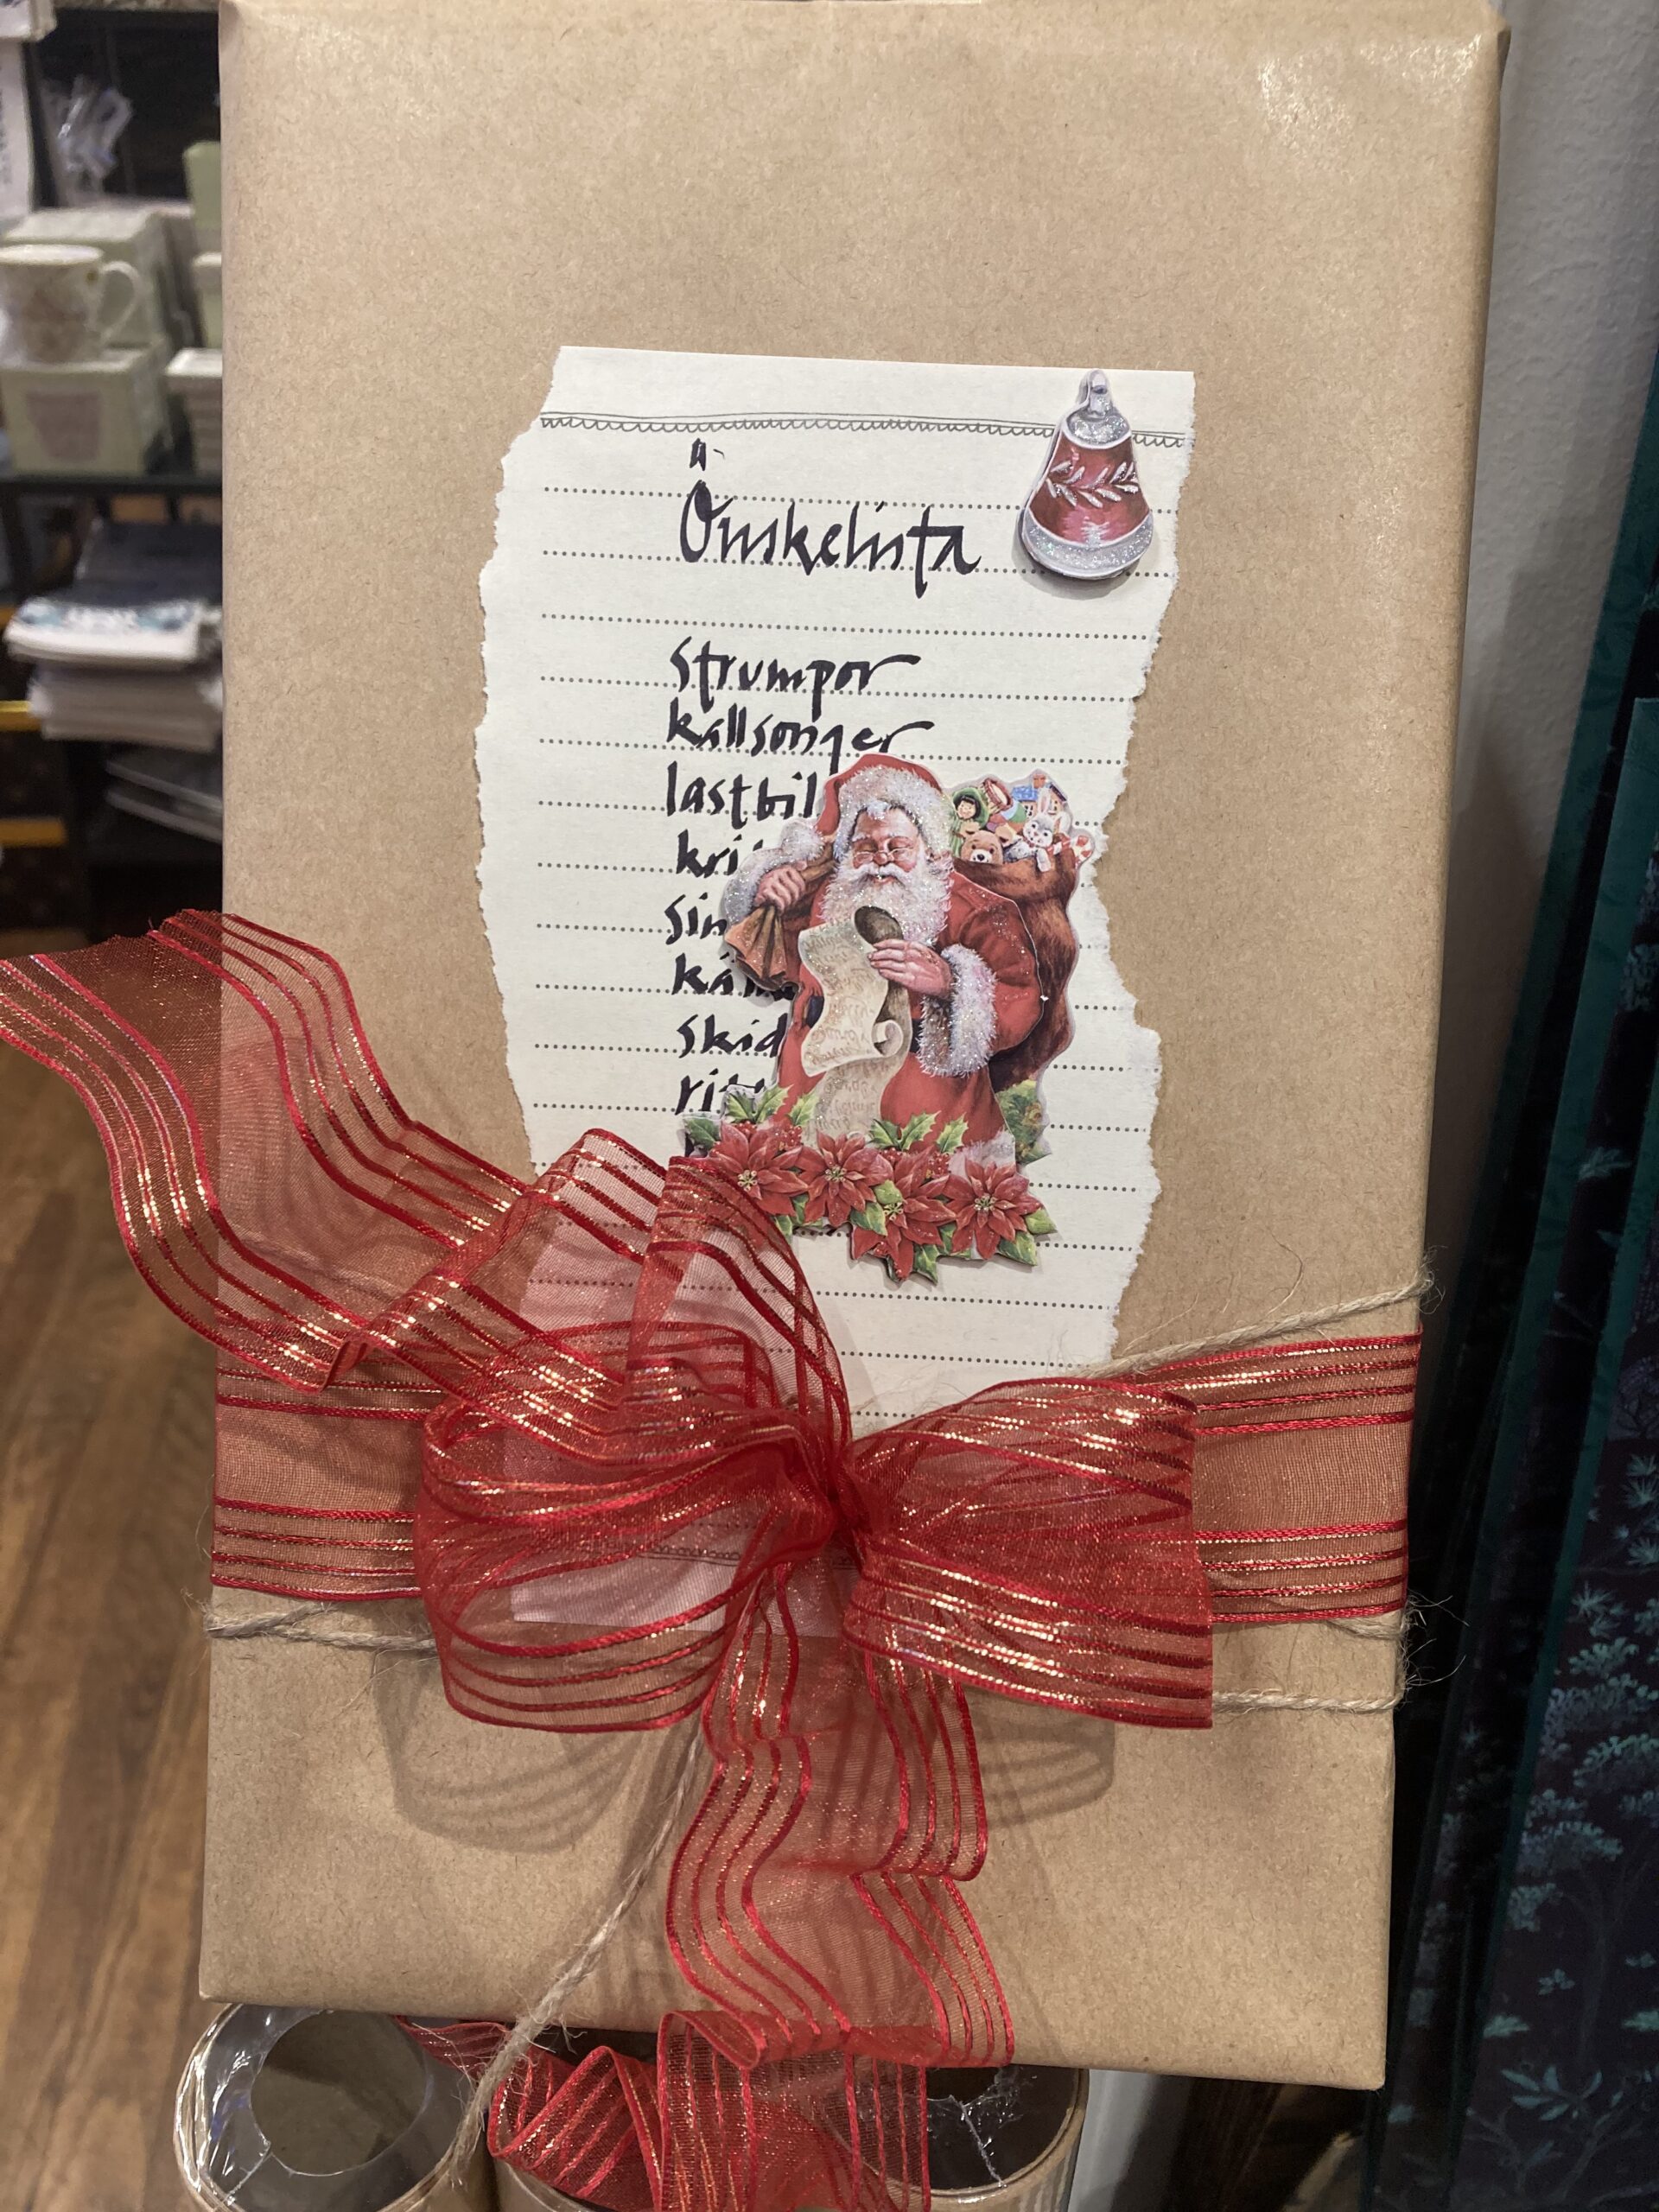 Önskelista
Strumpor
kallsonger
lastbil
kri
sin
skid
ri